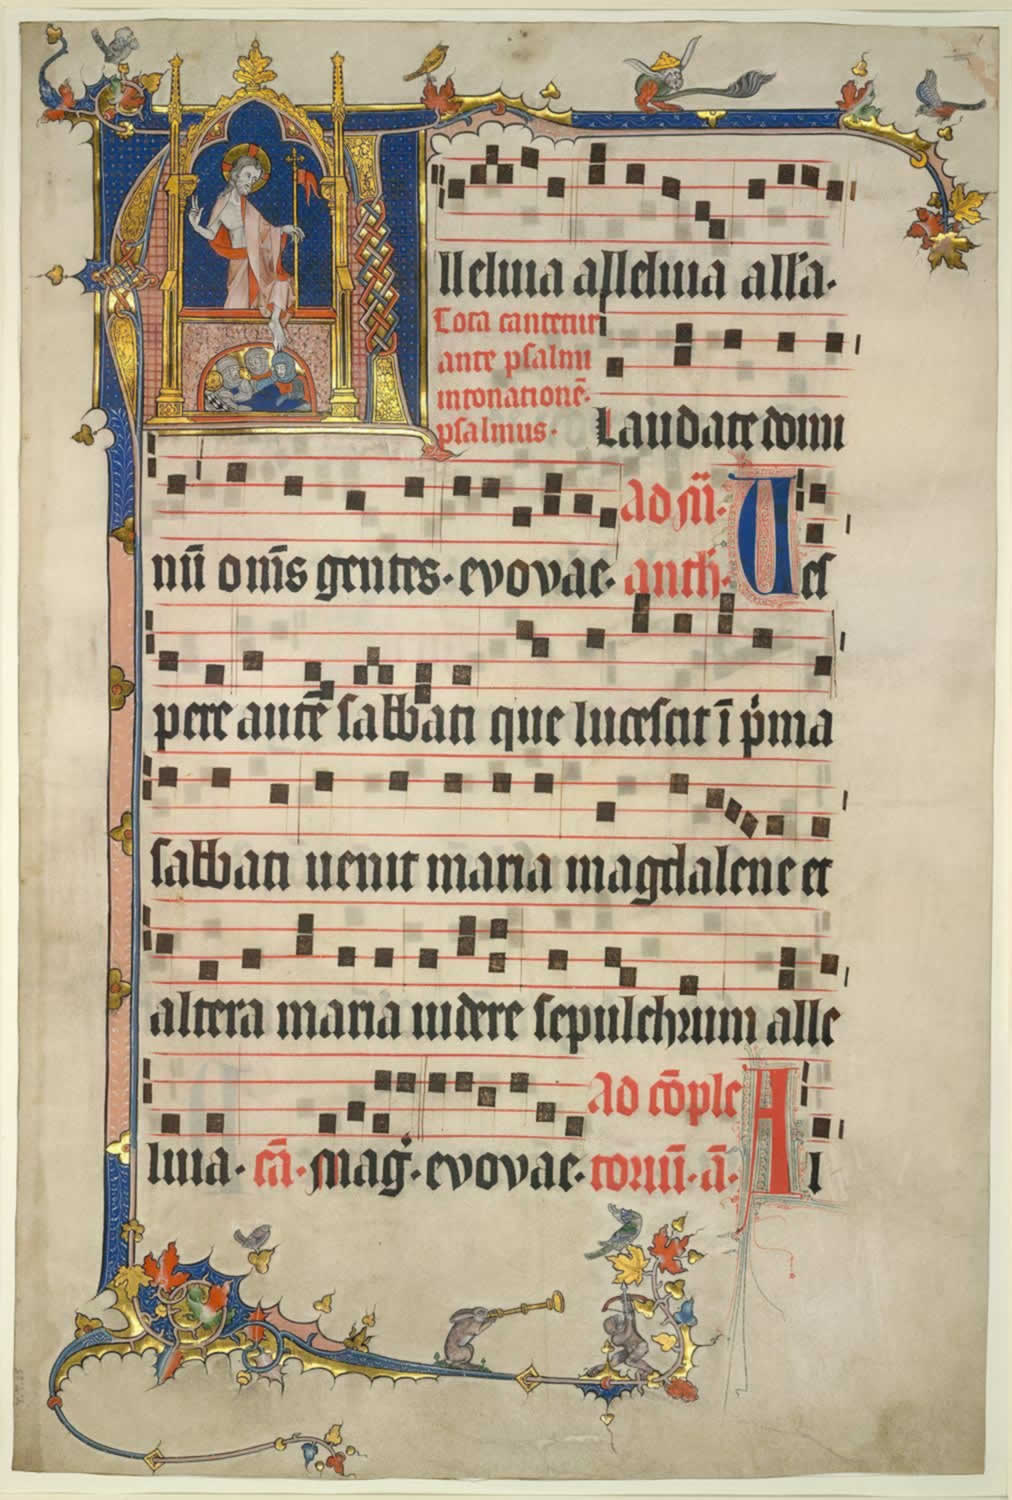 Alleluia alleluia alla.
Tota cantetur
ante psalmi
intonationē.
psalmus.
Laudate domi
nū om̄s gentes. evovae.
ad m̄.
anth.
Ves
pere autē sabbati que lucescit ī p̄ma
sabbati uenit maria magdalene et
altera maria uidere sepulchrum alle
luia. cā. mag̕. evovae.
ad cōple
toriū. ā.
Al